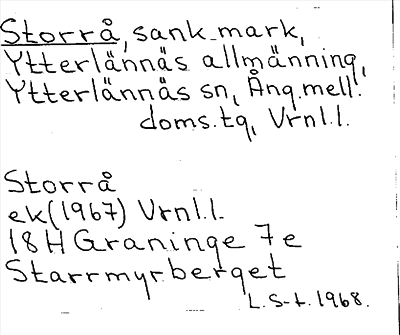 Storrå, sank mark,
Ytterlännäs allmänning,
Ytterlännäs sn, Ång.mell.
doms.tg, Vrnl.l.
Storrå
ek(1967) Vrnl.l.
18H Graninge 7e
Starrmyrberget
L.S-t. 1968.